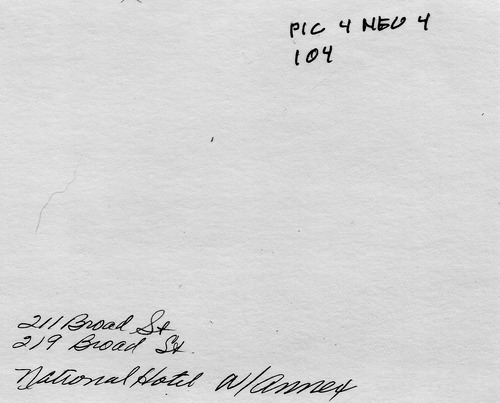 PIC 4 NEG 4
104
211 Broad St
219 Broad St.
National Hotel w/annex